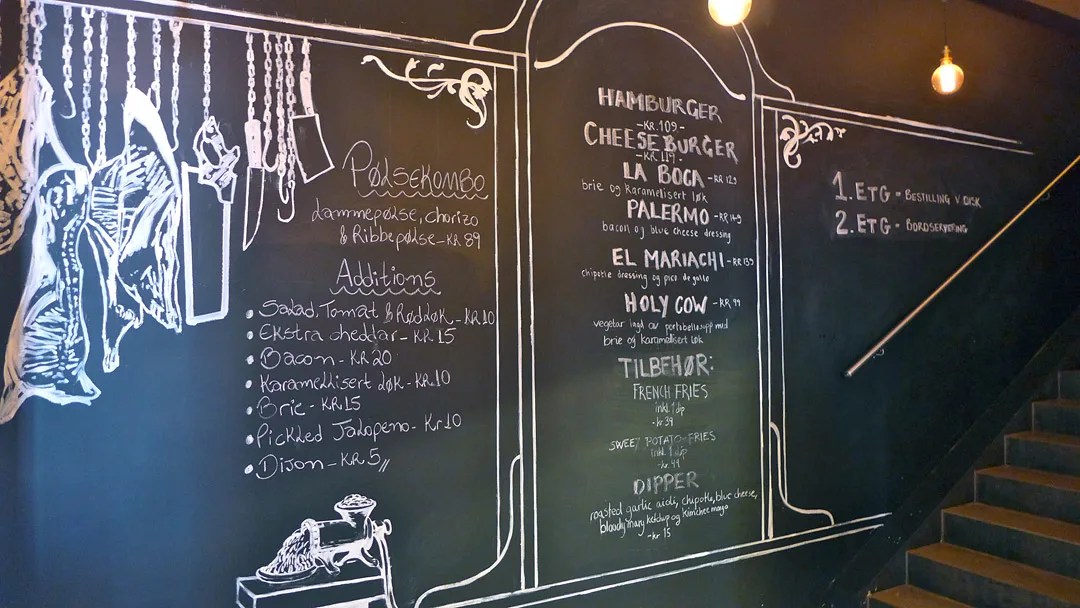 PØLSEKOMBO
Lammepølse, chorizo
& Ribbepølse - KR 89
Additions
Salad, Tomat & Rødløk - KR 10
Ekstra cheddar - KR 15
Bacon - KR 20
Karamellisert løk - KR 10
Brie - KR 15
Pickled Jalapeno - Kr 10
Dijon - KR 5,,
HAMBURGER
- KR. 109 -
CHEESEBURGER
- KR. 119 -
LA BOCA - KR 129
brie og karamellisert løk
PALERMO - KR 149
bacon og blue cheese dressing
EL MARIACHI - KR 139
chipotle dressing og pico de gallo
HOLY COW - KR 99
vegetar lagd av portobellosopp med
brie og karamellisert løk
TILBEHØR:
FRENCH FRIES
inkl. 1 dip
- kr 39
SWEET POTATO FRIES
inkl. 1 dip
- kr. 49
DIPPER
roasted garlic aioli, chipotle, blue cheese,
bloody mary ketchup og kimchee mayo
- kr 15
1. ETG = BESTILLING V. DISK
2. ETG = BORDSERVERING